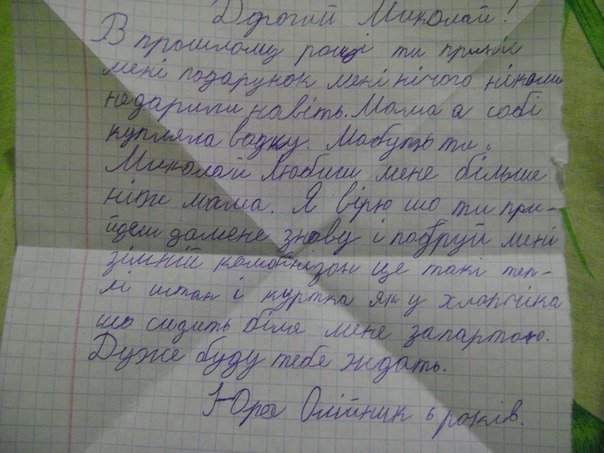 Дорогий Миколай!
В прошлому році ти приніс
мені подарунок мені нічого ніколи
недарили навіть. Мама а собі
купляла водку. Мабуть ти
Миколай любиш мене більше
ніж мама. Я вірю шо ти при-
йдеш домене знову і подаруй мені
зімній комбінізон це такі теп-
лі штани і куртка як у хлопчіка
шо сидить біля мене запартою.
Дуже буду тебе ждать.
Юра Олійник 6 років.